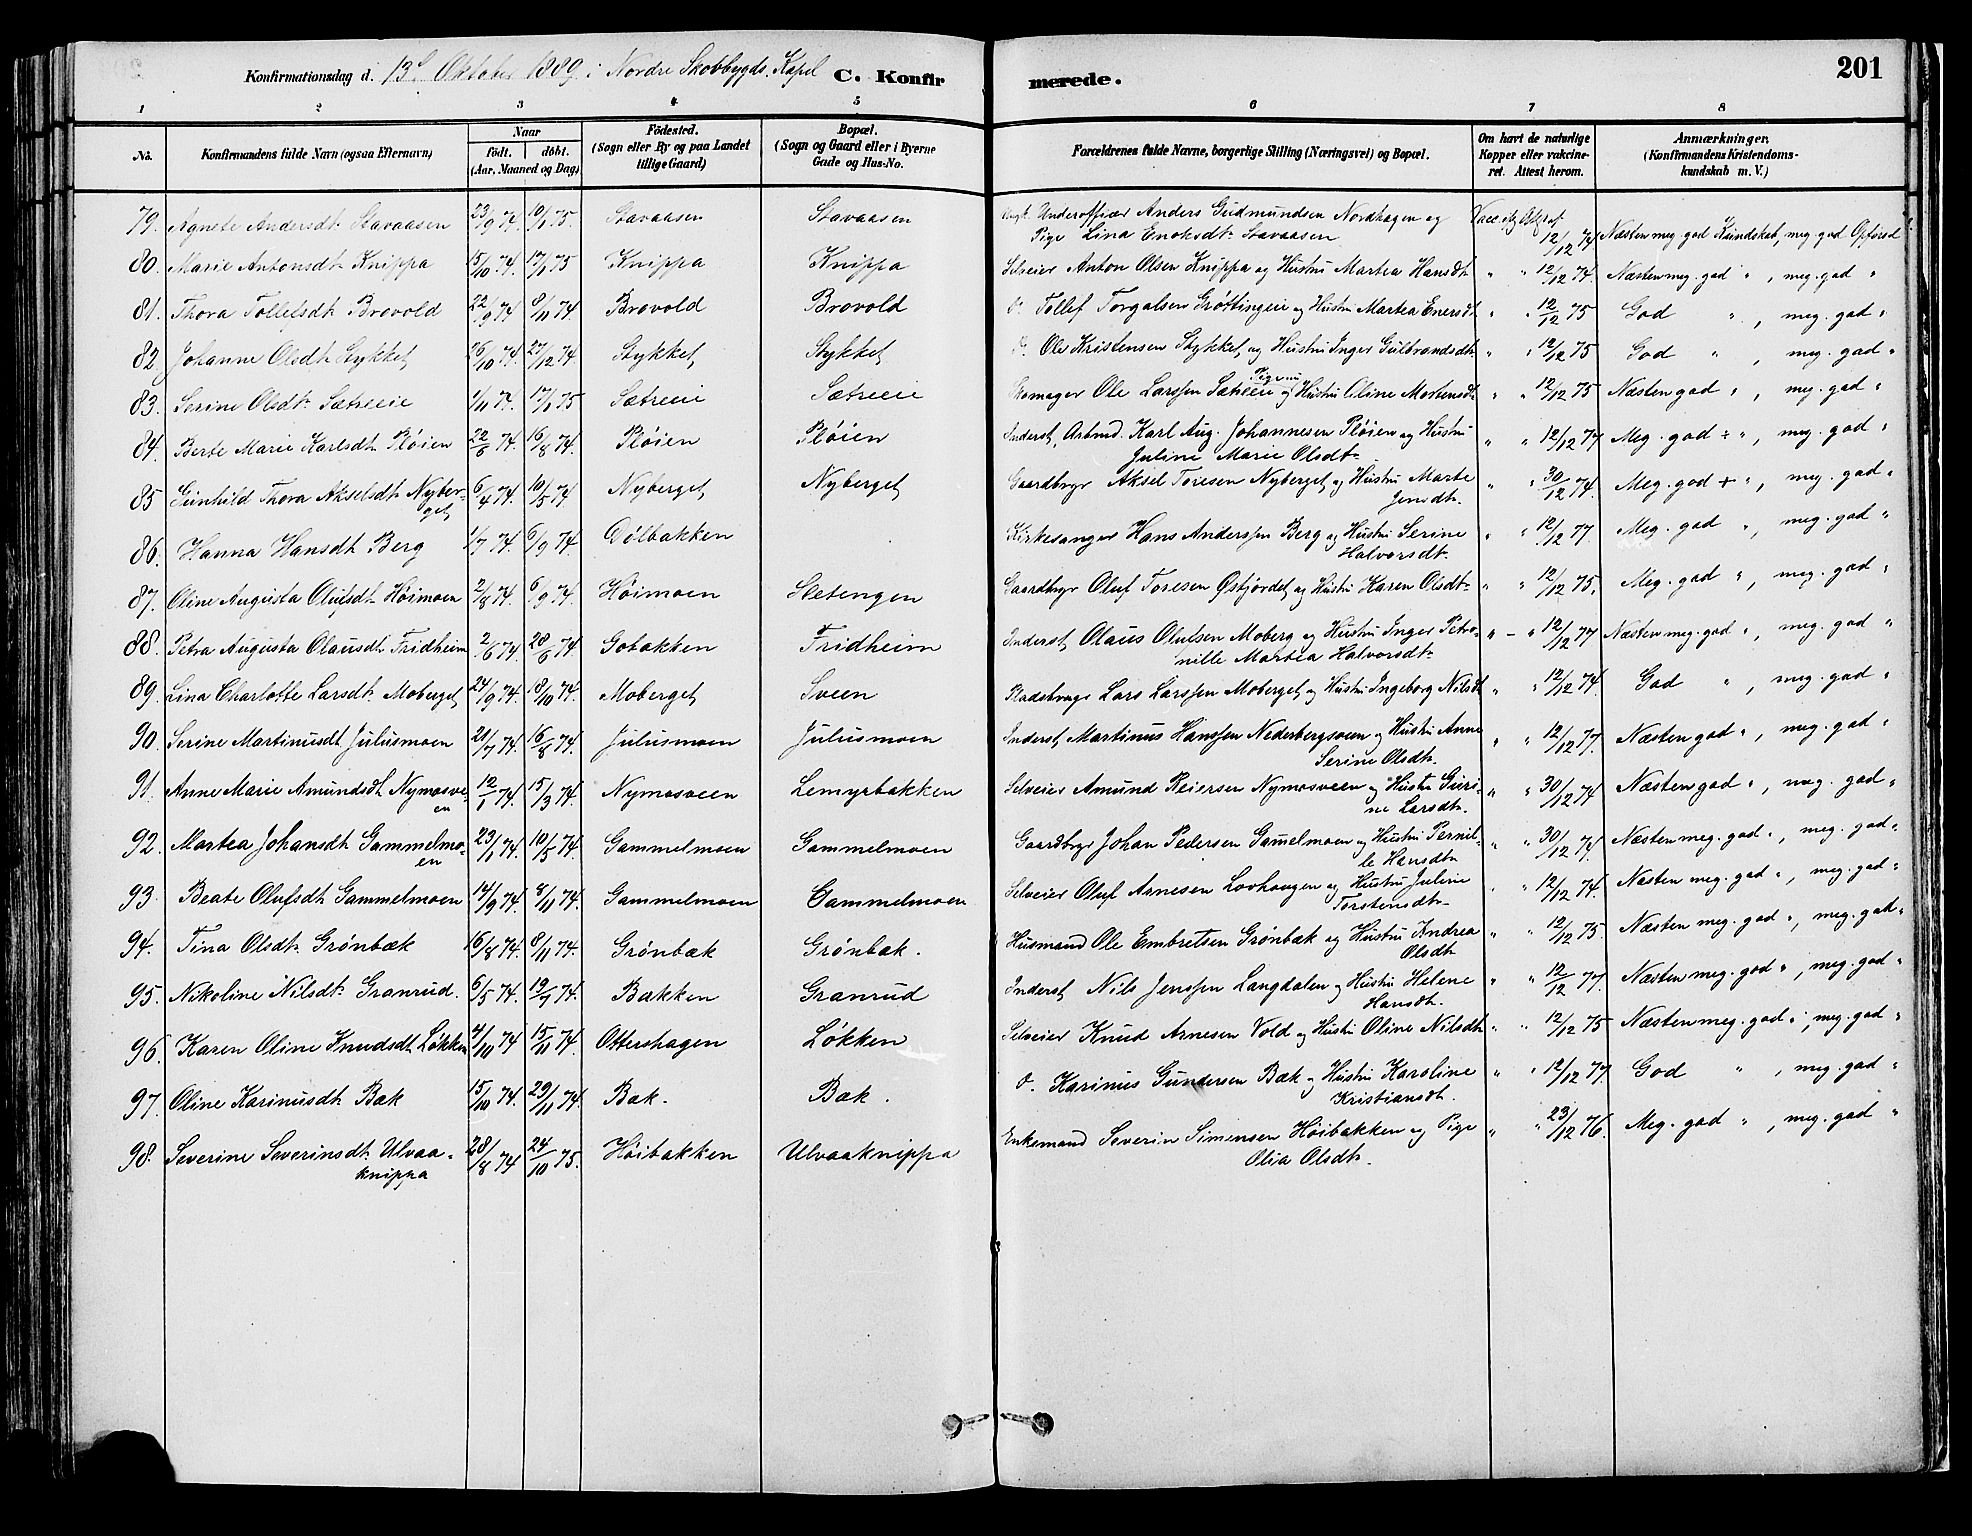 Konfirmationsdag d. 13de Oktober 1889 i Nordre Skovbygds Kapel C. Konfir merede. 201
1 2 3 4 5 6 7 8
No. Konfirmandens fulde Navn (ogsaa Efternavn) Naar födt. döbt. (Aar, Maaned og Dag) Födested. (Sogn eller By og paa Landet tillige Gaard) Bopæl. (Sogn og Gaard eller i Byerne Gade og Hus-No. Forældrenes fulde Navne, borgerlige Stilling (Næringsvei) og Bopæl. Om havt de naturlige Kopper eller vakcineret. Attest herom. Anmærkninger, (Konfirmandens Kristendomskundskab m. V.)
79. Agnete Andersdt. Stavaasen 23/9 74. 10/1 75. Stavaasen Stavaasen Ungk. Underofficer Anders Gudmundsen Nordhagen og Pige Lina Enoksdt. Stavaasen 12/12 74 Næsten meg. god Kundskab, meg. god Opførsel
80. Marie Antonsdt. Knippa 15/10 74. 17/1 75 Knippa Knippa Selveier Anton Olsen Knippa og Hustru Martea Hansdt. " " 12/12 74. Næsten meg. god " , meg. god "
81. Thora Tollefsdt. Brovold 22/9 74 8/11 74. Brovold Brovold Do. Tollef Torgalsen Grøttingeie og Hustru Martea Enersdt. " " 12/12 75 God " , meg. god "
82. Johanne Olsdt. Stykket 26/10 74. 27/12 74 Stykket Stykket Do. Ole Kristensen Stykket og Hustru Inger Gulbrandsdt. " " 12/12 75 God " , meg. god "
83. Serine Olsdt. Sætreeie 1/11 74. 17/1 75 Sætreeie Sætreeie Skomager Ole Larssen Sætreeie og Hustru Oline Mortensdt. " " 12/12 75 Næsten god " , meg. god "
84. Berte Marie Karlsdt. Pløien 22/6 74. 16/8 74. Pløien Pløien Inderst, Arbmd. Karl Aug. Johannesen Pløien og Hustru Juline Marie Olsdt. " " 12/12 77 Meg. god ÷ " , meg. god "
85 Gunhild Thora Akselsdt. Nyberget 6/4 74. 10/5 74. Nyberget Nyberget Gaardbrgr Aksel Toresen Nyberget og Hustru Marte Jensdt. " " 30/12 74. Meg. god + " , meg. god "
86. Hanna Hansdt. Berg 1/7 74. 6/9 74. Dølbakken Kirkesanger Hans Anderssen Berg og Hustru Serine Halvorsdt. " " 12/12 77. Meg. god " , meg. god "
87. Oline Augusta Olufsdt. Høimoen 2/8 74. 6/9 74. Høimoen Sletengen Gaardbrgr Oluf Toresen Østjordet og Hustru Karen Olsdt. " " 12/12 75. Meg. god " , meg. god "
88. Petra Augusta Olausdt. Fridheim 2/6 74. 28/6 74. Gobakken Fridheim Inderst, Olaus Olufsen Moberg og Hustru Inger Petronille Martea Halvorsdt. " – " 12/12 77 Næsten meg. god " , meg. god "
89. Lina Charlotte Larsdt. Moberget 24/9 74. 18/10 74. Moberget Sveen Pladsbrugr Lars Larssen Moberget og Hustru Ingeborg Nilsdt. " " 12/12 74. God " , meg. god "
90. Serine Martinusdt. Julusmoen 21/7 74. 16/8 74. Julusmoen Julusmoen Inderst Martinus Hanssen Nederbergsveen og Hustru Anne Serine Olsdt. " " 12/12 77. Næsten god " , meg. god "
91. Anne Marie Amundsdt. Nymosveen 12/1 74. 15/3 74. Nymosveen Lemyrbakken Selveier Amund Reiersen Nymosveen og Hustru Gurine Larsdt. " " 30/12 74 Næsten god " , meg. god "
92. Martea Johansdt. Gammelmoen 23/1 74. 10/5 74. Gammelmoen Gammelmoen Gaardbrgr Johan Pedersen Gamelmoen og Hustru Pernille Hansdt. " " 30/12 74. Næsten meg. god " , meg. god "
93. Beate Olufsdt. Gammelmoen 14/9 74. 8/11 74. Gammelmoen Gammelmoen Selveier Oluf Arnesen Lovhaugen og Hustru Juline Torstensdt. " " 12/12 74. Næsten meg. god " , meg. god "
94. Tina Olsdt. Grønbæk 16/8 74. 8/11 74. Grønbæk Grønbæk. Husmand Ole Embretsen Grønbæk og Hustru Andrea Olsdt. " " 12/12 75. Næsten meg. god " , meg. god "
95. Nikoline Nilsdt. Granrud. 6/5 74. 19/7 74. Bakken Granrud Inderst, Nils Jenssen Langdalen og Hustru Helene Hansdt. " " 12/12 77. Næsten meg. god " , meg. god "
96. Karen Oline Knudsdt. Løkken 4/10 74 15/11 74. Ottershagen Løkken Selveier Knud Arnesen Vold og Hustru Oline Nilsdt. " " 12/12 75 Næsten meg. god " , meg. god "
97. Oline Karinusdt. Bæk 15/10 74. 29/11 74. Bæk. Bæk. Do. Karinus Gundersen Bæk og Hustru Karoline Kristiansdt. " " 12/12 77. God " , meg. god "
98. Severine Severinsdt. Ulvaaknippa 28/8 74 24/10 75. Høibakken Ulvaaknippa Enkemand Severin Simensen Høibakken og Pige Olia Olsdt. " " 23/12 76. Meg. god " , meg. god "